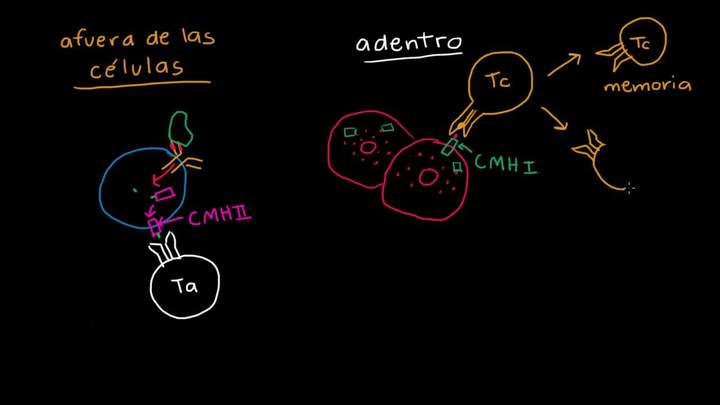 afuera de las
células
adentro
Tc
Tc
memoria
CMH I
CMH II
Ta